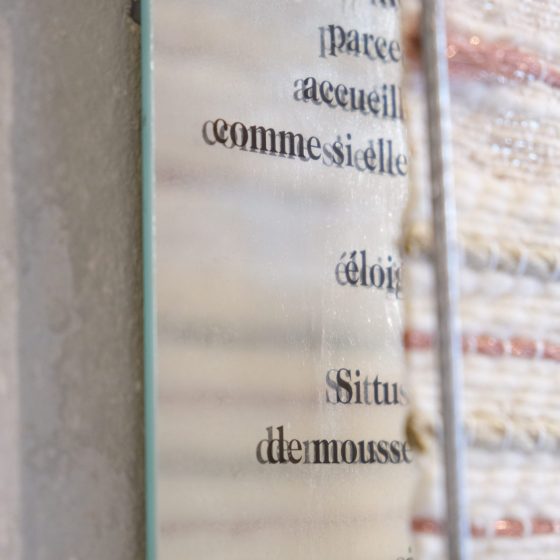 parce
accueill
comme si elle
éloig
Si tu
de mousse